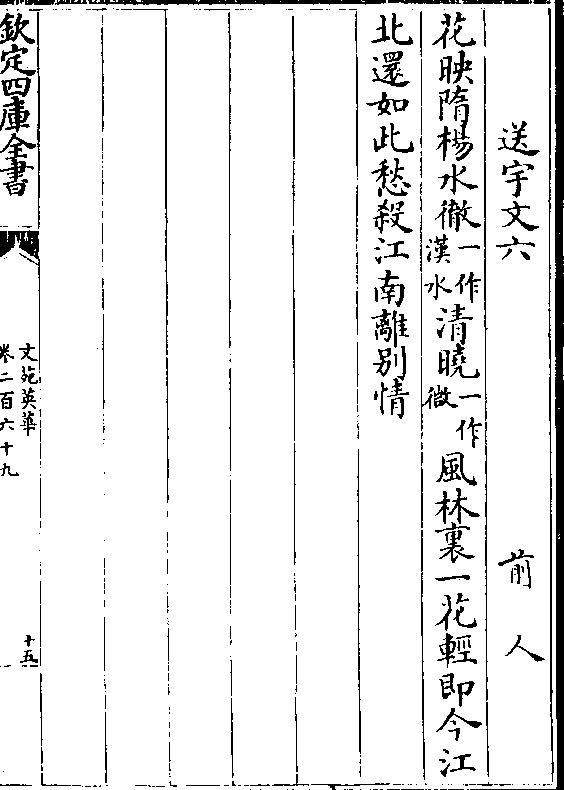 送宇文六　前人
花映隋楊水徹一作漢水清曉一作微風林裏一花輕即今江
北還如此愁殺江南離別情
欽定四庫全書
文苑英華
卷二百六十九
十五